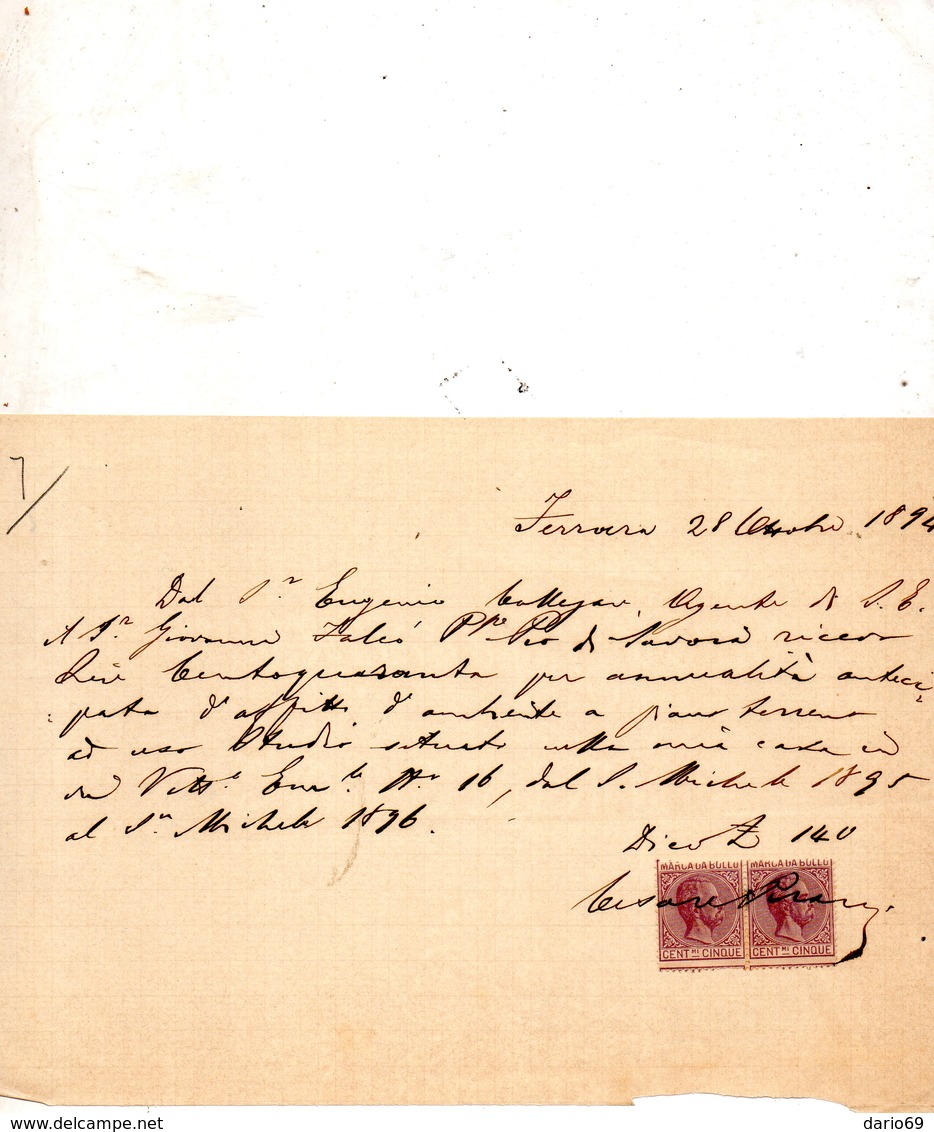 7/
Ferrara 28 Ottobre 1894
Dal Sr Eugenio Agente di S. E.
il Sr Giovanni Falcó Ppe Pio di Savoia ricevo
Lire Centoquaranta per annualità anteci
pata d'affitto d'ambiente a piano terreno
ad uso Studio situato nella mia casa in
via Vitto. Emle No 16, dal S. Michele 1895
al Sn Michele 1896.
Dico £ 140
Cesare
MARCA DA BOLLO MARCA DA BOLLO
CENT.MI CINQUE CENT.MI CINQUE
delcampe.net
dario69